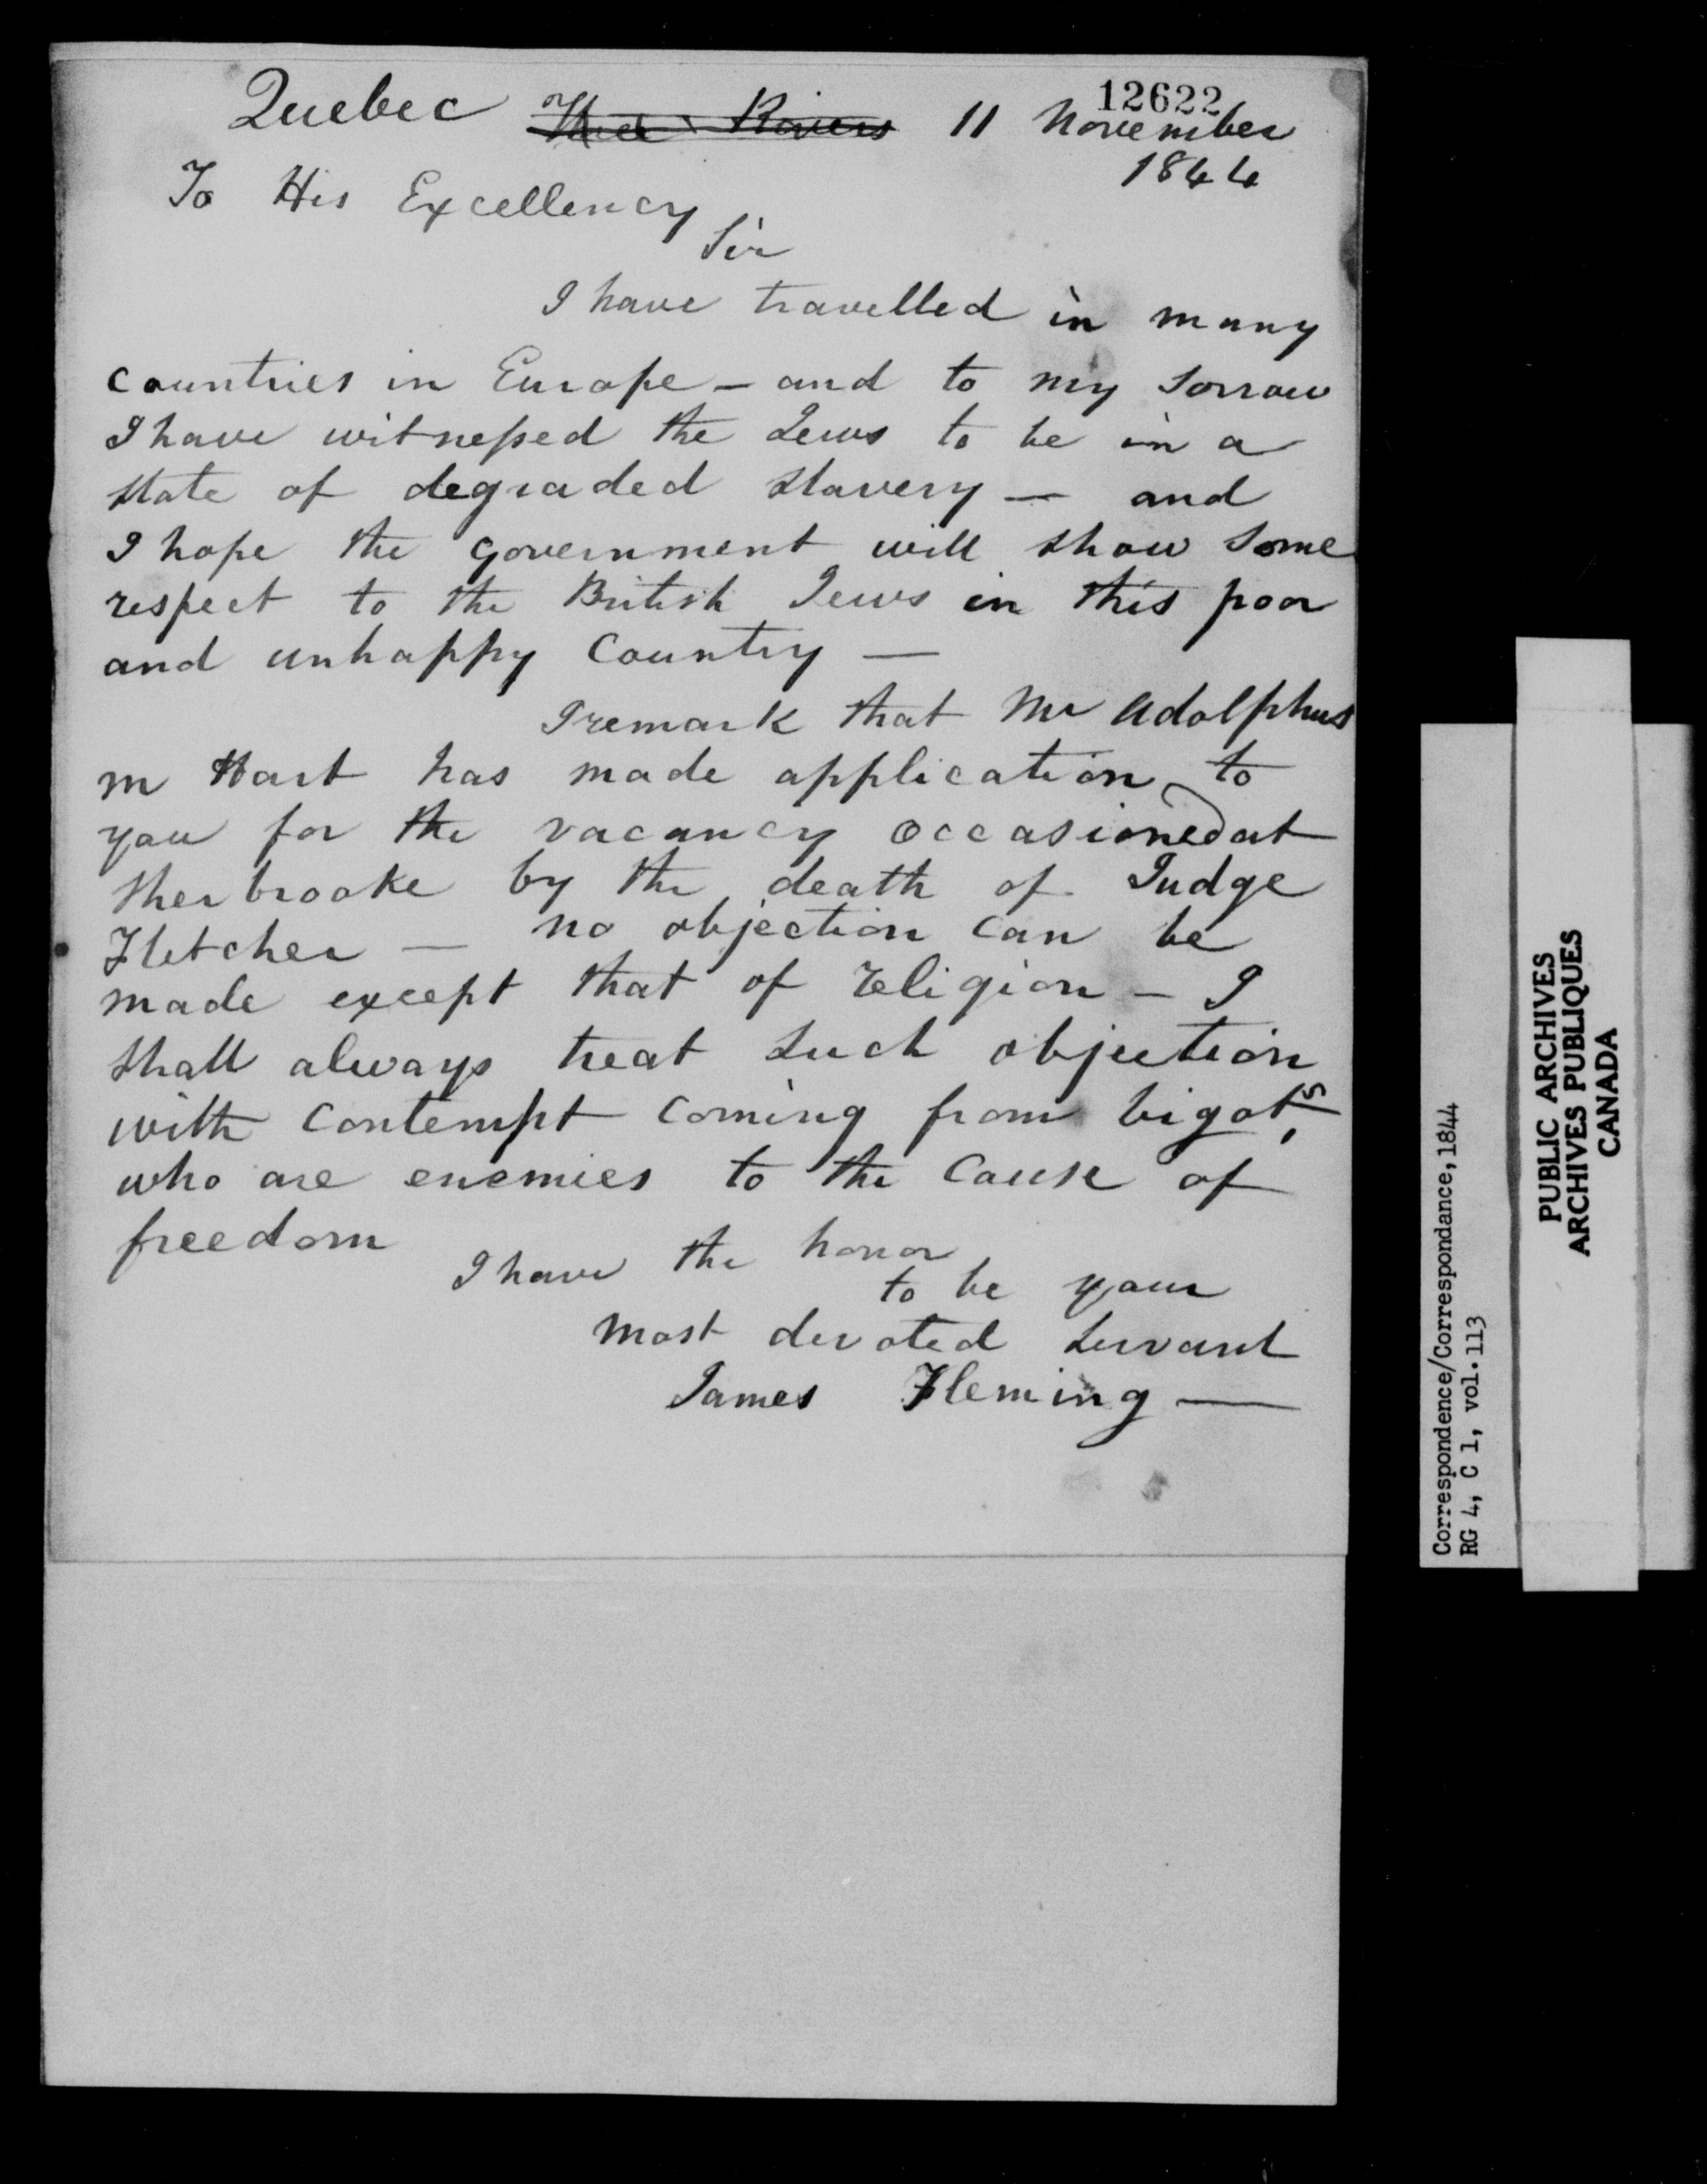 12622
Quebec Three Rivers 11 November
1844
To His Excellency
Sir
I have travelled in many
countries in Europe - and to my sorrow
I have witnessed the Jews to be in a
state of degraded slavery — and
I hope the government will show some
respect to the British Jews in this poor
and unhappy Country —
I remark that Mr Adolphus
M Hart has made application to
you for the vacancy occasioned at
Sherbrooke by the death of Judge
Fletcher — no objection can be
made except that of religion - I
shall always treat such objection
with contempt coming from bigots,
who are enemies to the cause of
freedom
I have the honor
to be your
most devoted servant
James Fleming —
Correspondence/Correspondance, 1844
RG 4, C 1, vol. 113
PUBLIC ARCHIVES
ARCHIVES PUBLIQUES
CANADA